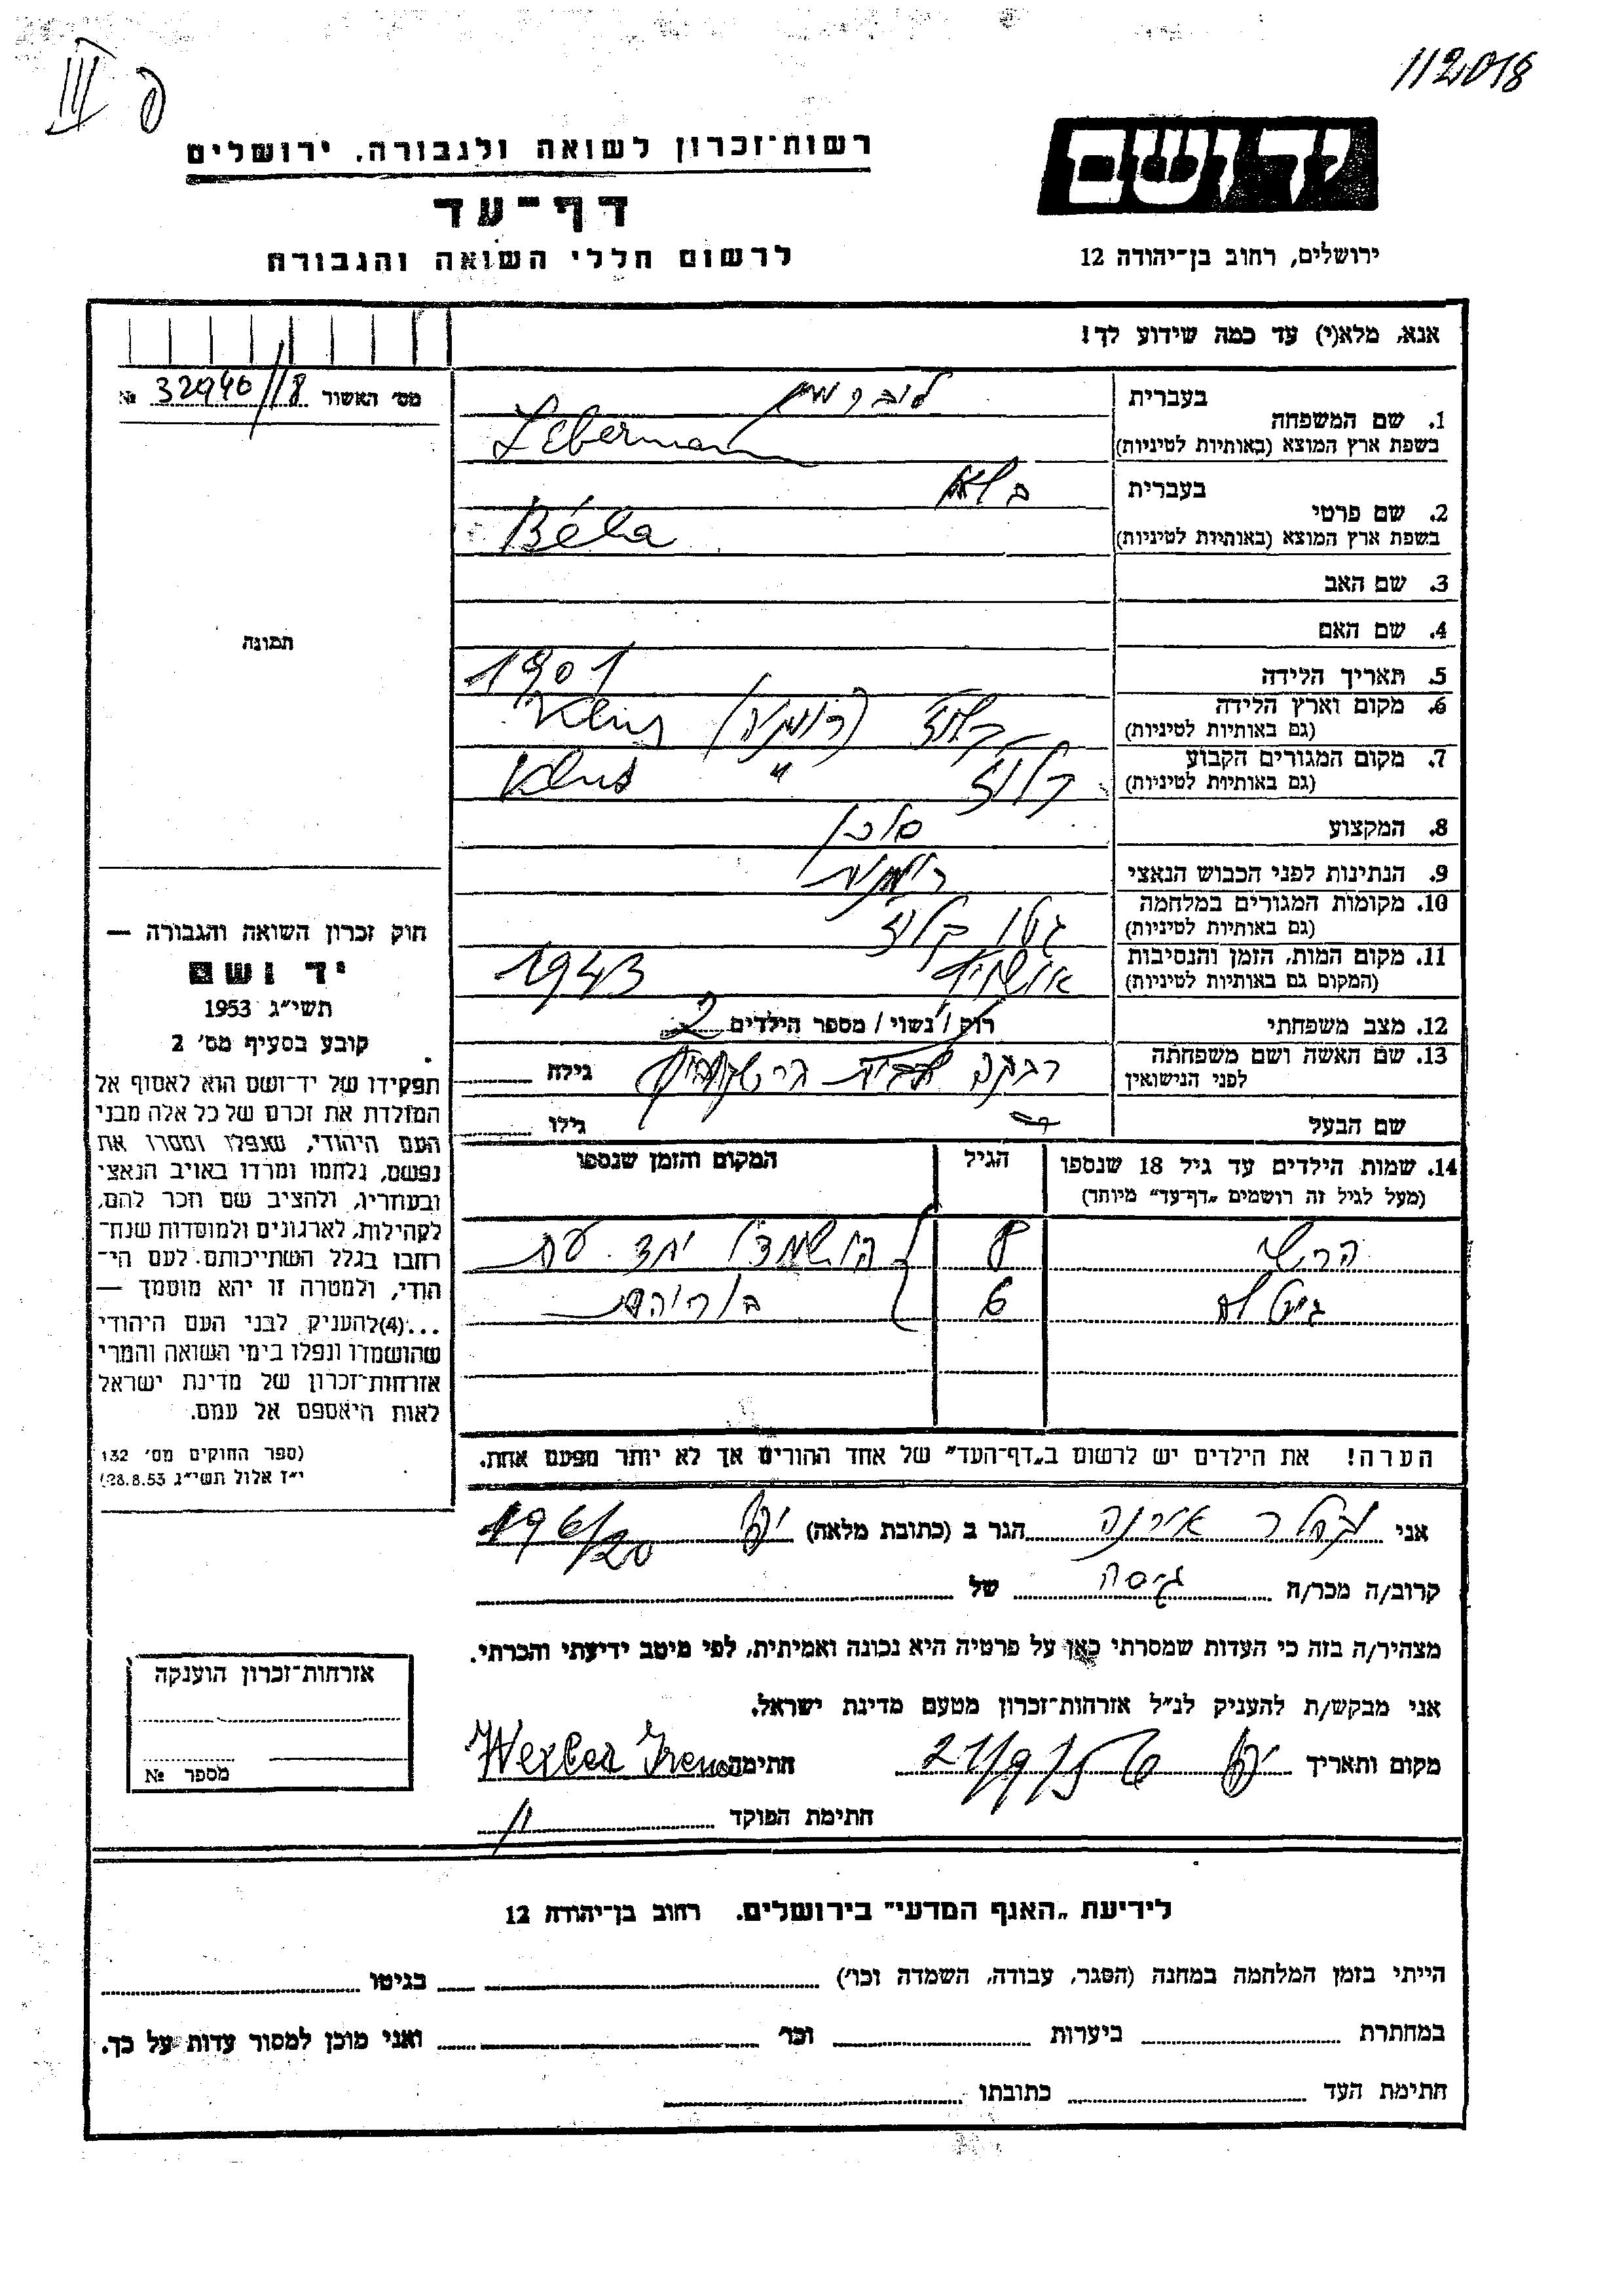 112018
III
יד ושם
רשות־זכרון לשואה ולגבורה, ירושלים
דף־עד
ירושלים, רחוב בן־יהודה 12
לרשום חללי השואה והגבורה
אנא, מלא(י) עד כמה שידוע לך!
מס׳ האשור 32940/18 №
בעברית
1. שם המשפחה
בשפת ארץ המוצא (באותיות לטיניות) Leberman
בעברית
2. שם פרטי
בשפת ארץ המוצא (באותיות לטיניות) Béla
3. שם האב
4. שם האם
תמונה
5. תאריך הלידה 1901
6. מקום וארץ הלידה קלוז׳ (רומניה)
(גם באותיות לטיניות)
7. מקום המגורים הקבוע קלוז׳ "
(גם באותיות לטיניות)
8. המקצוע סוכן
9. הנתינות לפני הכבוש הנאצי רומנית
10. מקומות המגורים במלחמה גטו קלוז׳
(גם באותיות לטיניות)
11. מקום המות, הזמן והנסיבות אושויץ 1943
(המקום גם באותיות לטיניות)
12. מצב משפחתי רווק / נשוי / מספר הילדים 2
13. שם האשה ושם משפחתה רבקה לבית גילה
לפני הנישואין
שם הבעל גילו
14. שמות הילדים עד גיל 18 שנספו הגיל המקום והזמן שנספו
(מעל לגיל זה רושמים „דף־עד” מיוחד)
הרשי 8 הושמדו יחד עם
6 הוריהם
הערה! את הילדים יש לרשום ב„דף־העד” של אחד ההורים אך לא יותר מפעם אחת.
חוק זכרון השואה והגבורה —
יד ושם
תשי״ג 1953
קובע בסעיף מס׳ 2
תפקידו של יד־ושם הוא לאסוף אל
המולדת את זכרם של כל אלה מבני
העם היהודי, שנפלו ומסרו את
נפשם, נלחמו ומרדו באויב הנאצי
ובעוזריו, ולהציב שם וזכר להם,
לקהילות, לארגונים ולמוסדות שנח־
רחבו בגלל השתייכותם לעם הי־
הודי, ולמטרה זו יהא מוסמך —
...(4) להעניק לבני העם היהודי
שהושמדו ונפלו בימי השואה והמרי
אזרחות־זכרון של מדינת ישראל
לאות היאספם אל עמם.
(ספר החוקים מס׳ 132
י״ז אלול תשי״ג 28.8.53)
אני וכסלר אירנה הגר ב (כתובת מלאה) יפו 196/20
קרוב/ה מכר/ה גיסה של
מצהיר/ה בזה כי העדות שמסרתי כאן על פרטיה היא נכונה ואמיתית, לפי מיטב ידיעתי והכרתי.
אני מבקש/ת להעניק לנ״ל אזרחות־זכרון מטעם מדינת ישראל.
מקום ותאריך יפו 21/9/56 חתימה Wexler Irena
חתימת הפוקד
אזרחות־זכרון הוענקה
מספר №
לידיעת „האגף המדעי” בירושלים. רחוב בן־יהודה 12
הייתי בזמן המלחמה במחנה (הסגר, עבודה, השמדה וכו׳) בגיטו
במחתרת ביערות וכו׳ ואני מוכן למסור עדות על כך.
חתימת העד כתובתו